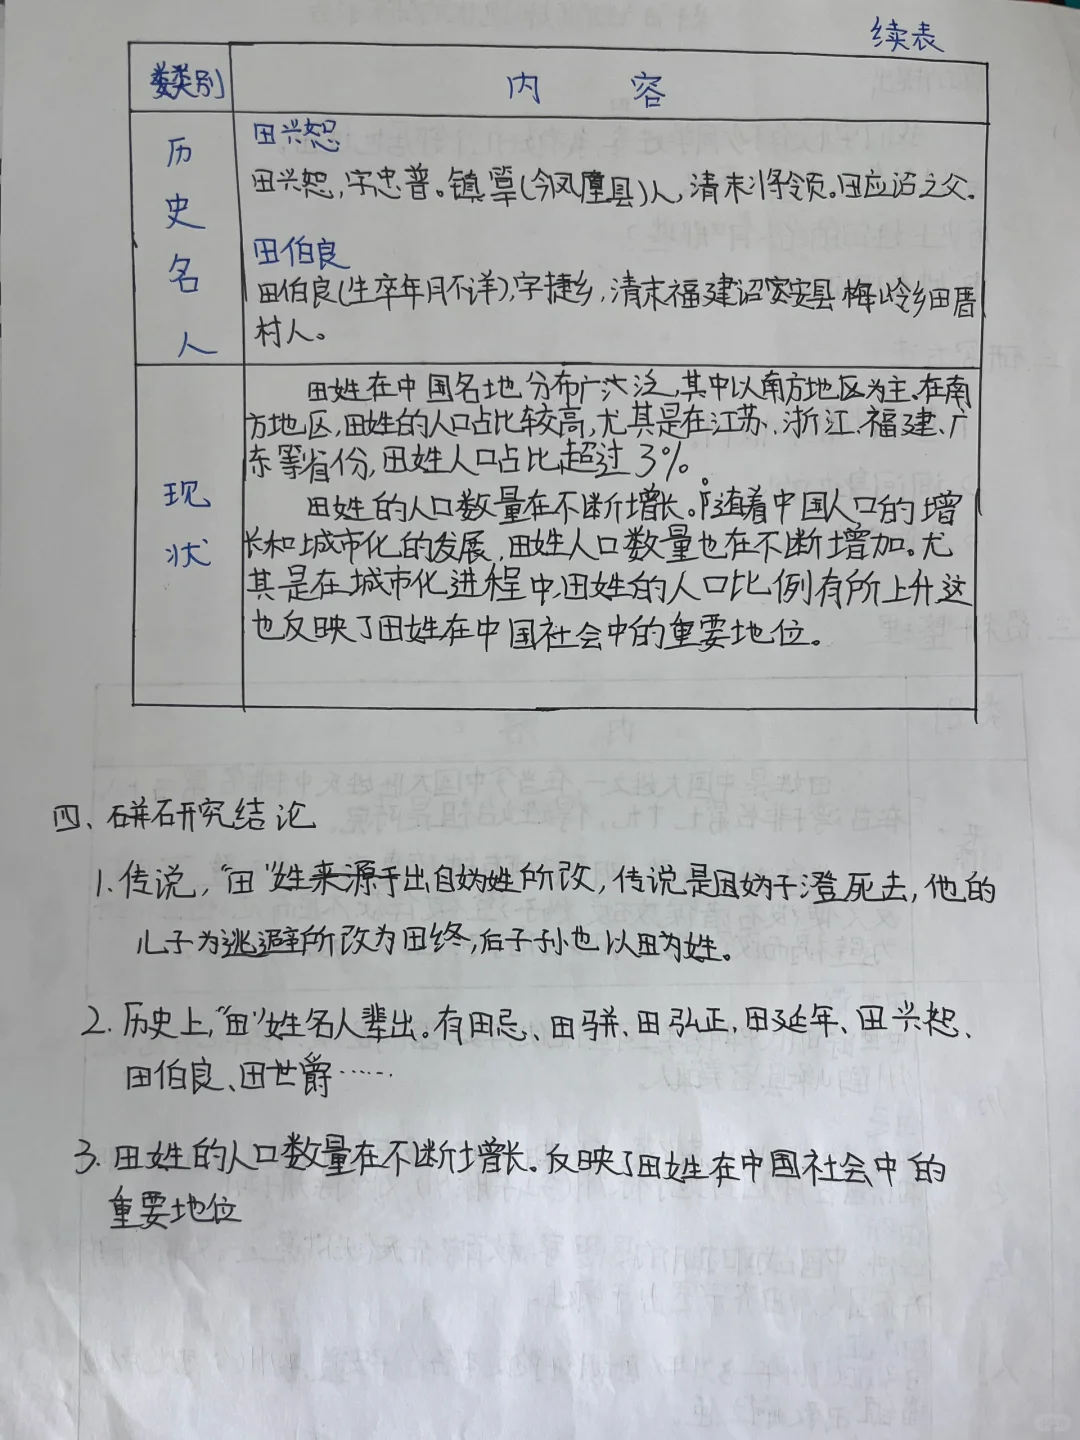 续表
类别
内 容
历史名人
田兴恕
田兴恕,字忠普。镇筸(今凤凰县)人,清末将领。田应诏之父。
田伯良
田伯良(生卒年月不详),字捷乡,清末福建诏安县梅岭乡田厝
村人。
现状
田姓在中国各地分布广泛,其中以南方地区为主。在南
方地区,田姓的人口占比较高,尤其是在江苏、浙江、福建、广
东等省份,田姓人口占比超过3%。
田姓的人口数量在不断增长。随着中国人口的增
长和城市化的发展,田姓人口数量也在不断增加。尤
其是在城市化进程中,田姓的人口比例有所上升,这
也反映了田姓在中国社会中的重要地位。
四、研究结论
1.传说,“田”姓来源于出自妫姓所改,传说是因妫子澄死去,他的
儿子为逃避所改为田终,后子子孙也以田为姓。
2.历史上,“田”姓名人辈出。有田忌、田骈、田弘正、田延年、田兴恕、
田伯良、田世爵……
3.田姓的人口数量在不断增长。反映了田姓在中国社会中的
重要地位